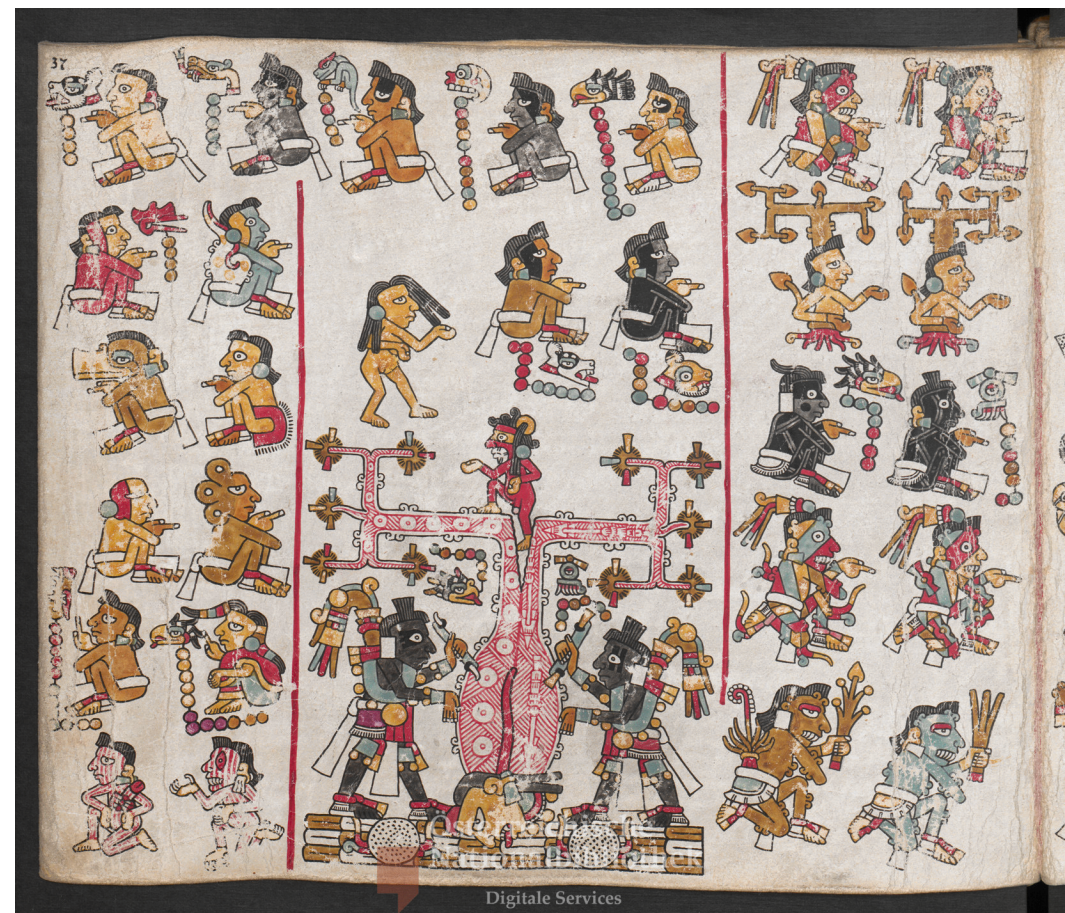 37
Österreichische
Nationalbibliothek
Digitale Services